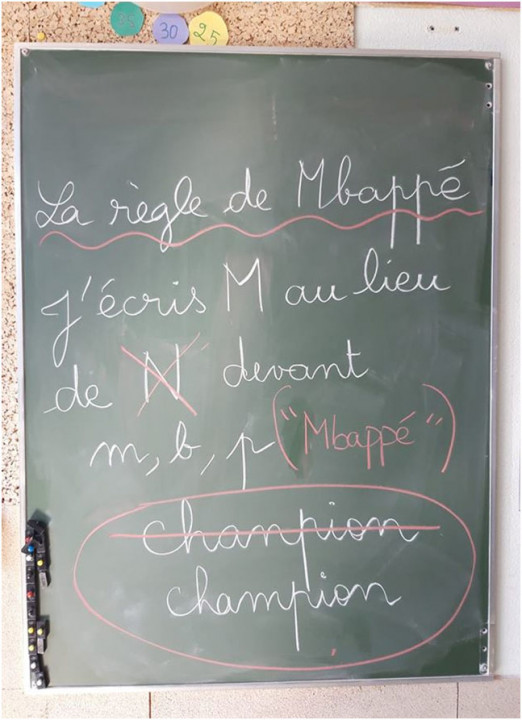 35 30 25
La règle de Mbappé
j'écris M au lieu
de N devant
m, b, p ("Mbappé")
chanpion
champion